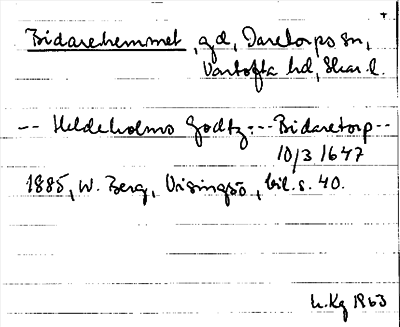 Bidarehemmet, gd, Daretorps sn,
Vartofta hd, Skar. l.
-- Heldeholms Godtz: -- Bidaretorp --
10/3 1647
1885, W. Berg, Visingsö, bil. s. 40.
L. Kg 1963